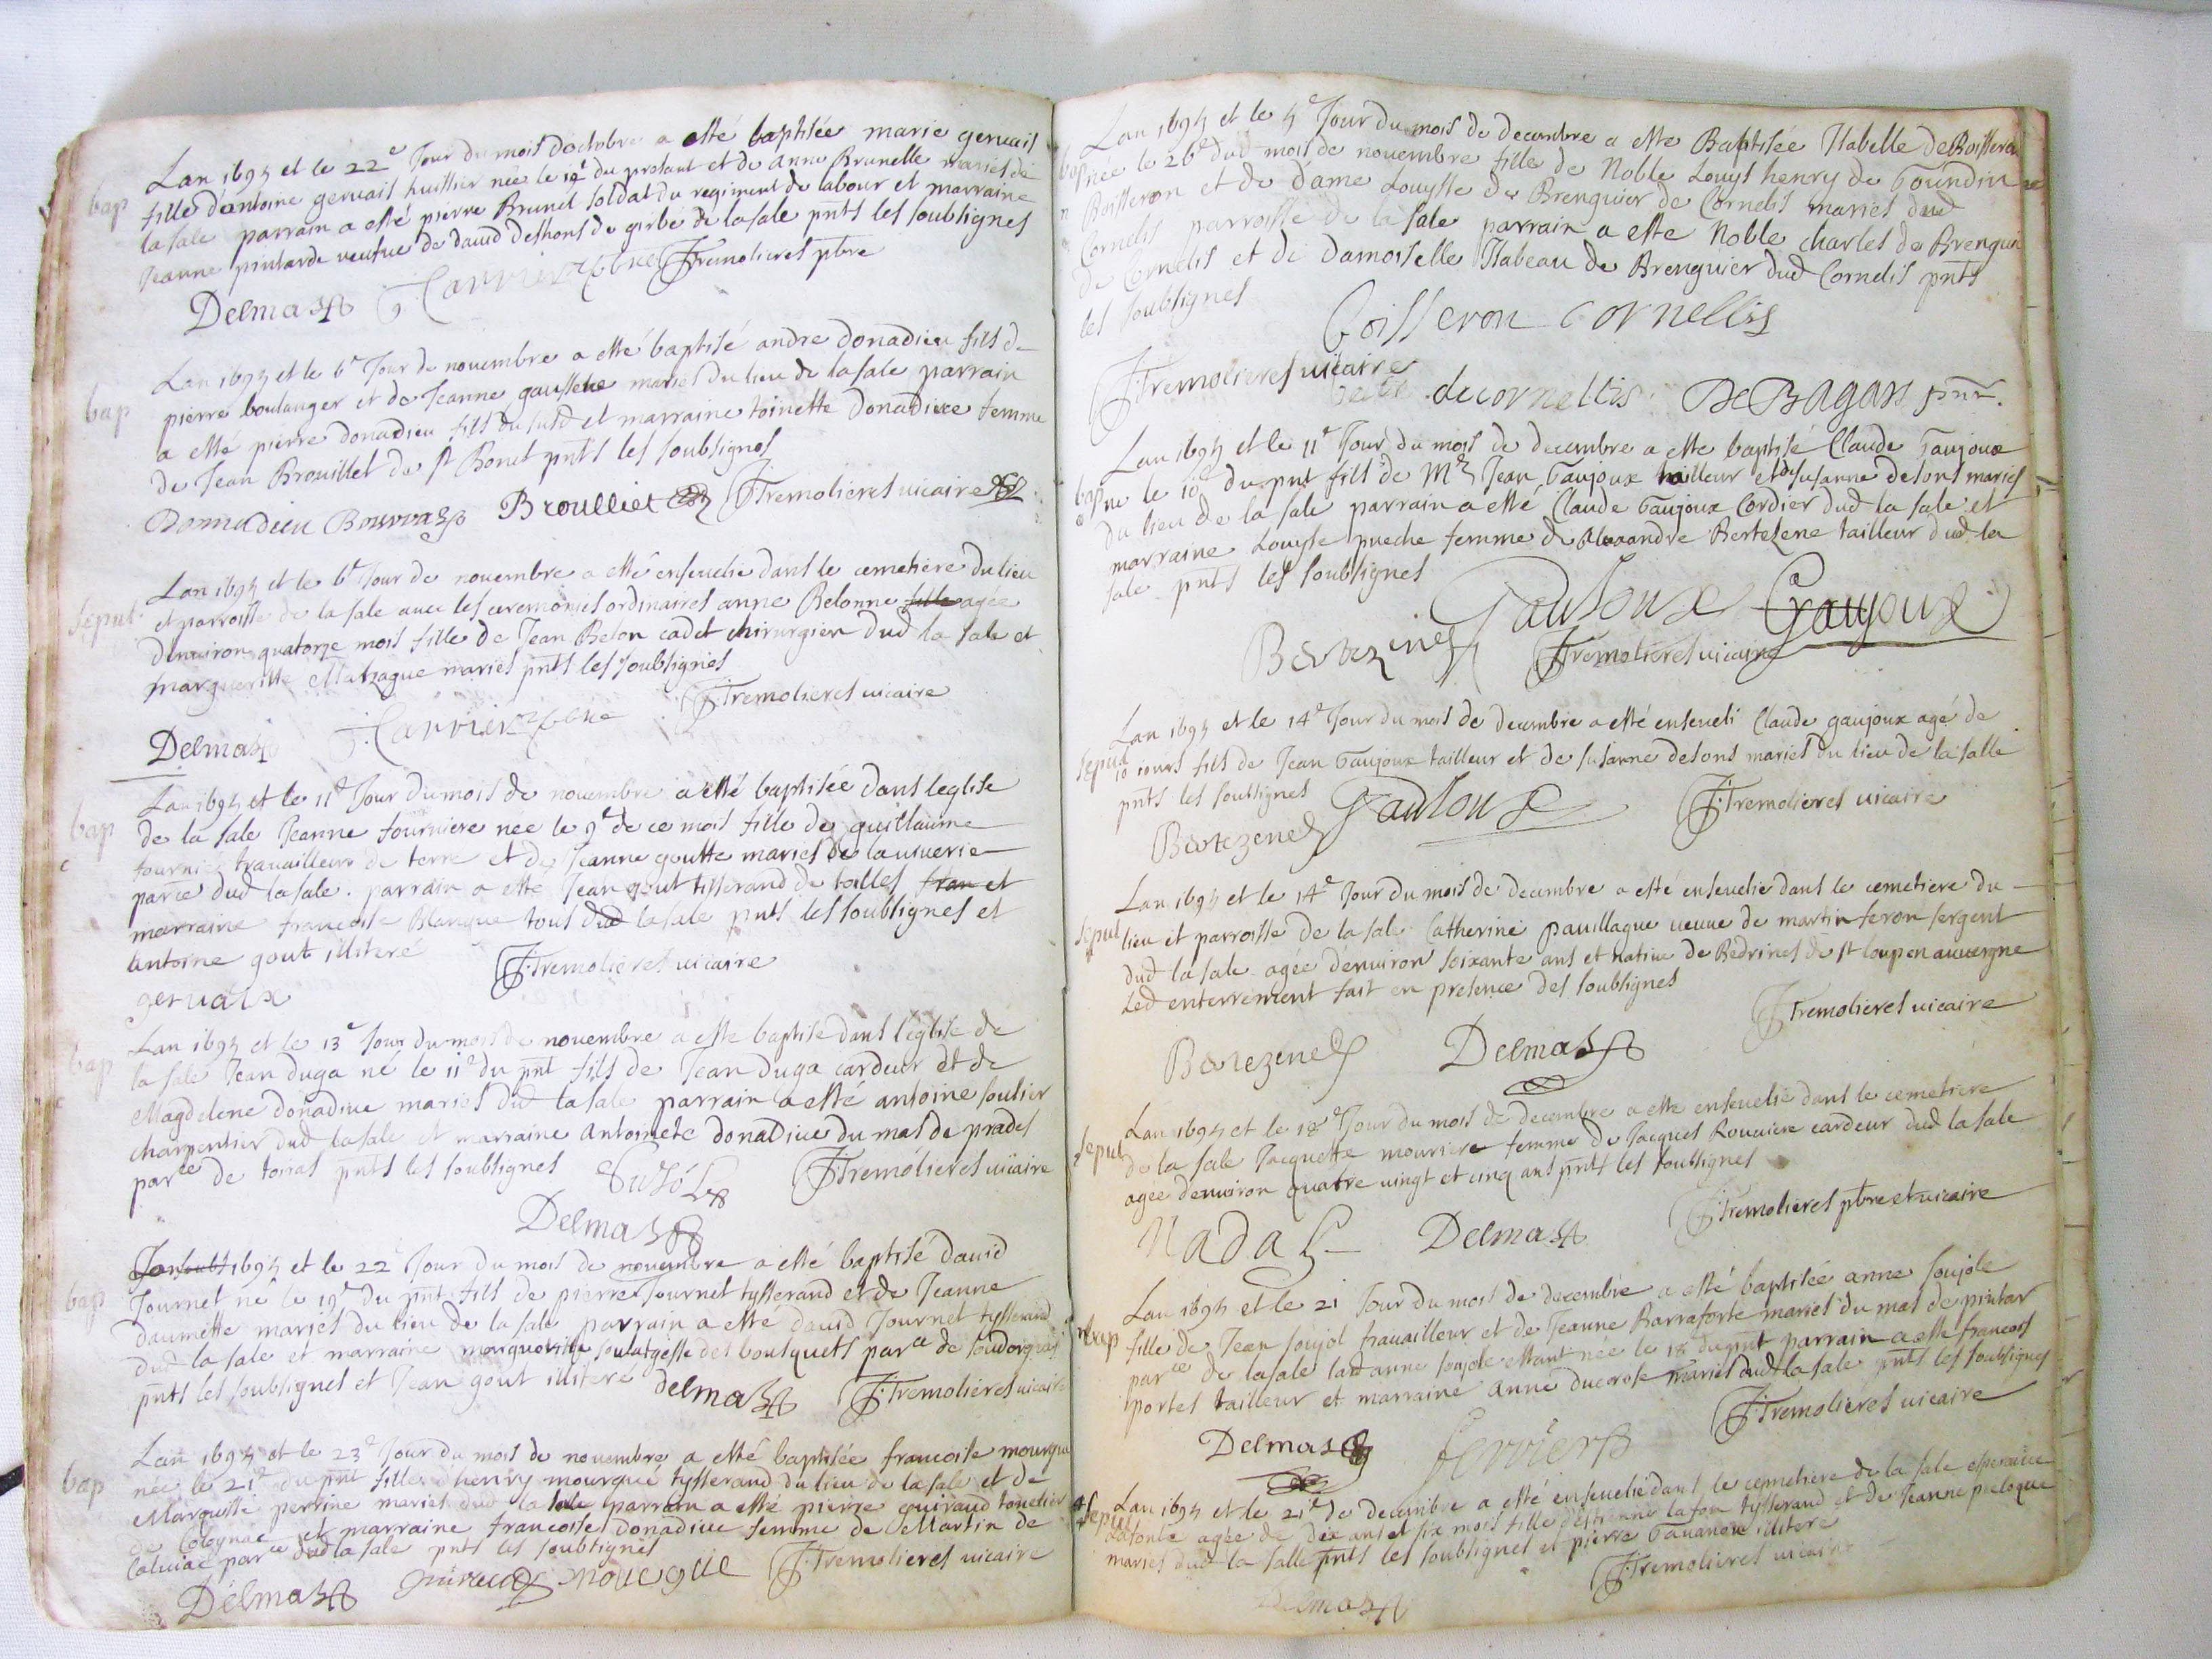 Lan 1695 et le 22e Jour du mois doctobre a esté baptisée marie gervais
bap
fille dantoine gervais huissier née le 19e du presant et de anne Brunelle mariés de
la sale parrain a esté pierre Brunel soldat du regiment de labour et marraine
Jeanne pintarde veufue de david deshons de girbe de la sale pnts les soubsignes
Delmas Carriere pbre JTremolieres pbre
Lan 1695 et le 6e Jour de novembre a esté baptisé andre donadieu fils de
bap
pierre boulanger et de Jeanne mariés du lieu de la sale parrain
a esté pierre donadieu fils du susd et marraine toinette donadieue femme
de Jean Brouillet de st Bonet pnts les soubsignes
Donnadieu Broulliet JTremolieres uicaire
Lan 1695 et le 6e Jour de novembre a esté enseuelie dans le cemetiere du lieu
sepul
et parroisse de la sale auec les ceremonies ordinaires anne Belonne fille agée
denuiron quatorze mois fille de Jean Belon cadet chirurgien dud la sale et
margueritte mariés pnts les soubsignes
Delmas Carriere JTremolieres uicaire
Lan 1695 et le 11e Jour du mois de novembre a esté baptisée dans leglise
bap
de la sale Jeanne fourniere née le 9e de ce mois fille de guillaume
fournie trauailleur de terre et de Jeanne goutte mariés de
parce dud la sale. parrain a esté Jean gout tisserand de toilles fran et
marraine francoise Blanque tous dud la sale pnts les soubsignes et
antoine gout illiteré
JTremolieres uicaire
gervaix
Lan 1695 et le 13e Jour du mois de novembre a esté baptisé dans leglise de
bap
la sale Jean duga né le 11e du pnt fils de Jean duga cardeur et de
Magdelene donadiue mariés dud la sale parrain a esté antoine soulier
charpentier dud la sale et marraine antoinete donadiue du mas de prades
parce de toiras pnts les soubsignes JTremolieres uicaire
Delmas
1695 et le 22e Jour du mois de novembre a esté baptisé david
bap
Journet né le 19e du pnt fils de pierre Journet tysserand et de Jeanne
daumette mariés du lieu de la sale parrain a esté david Journet tysserand
dud la sale et marraine margueritte soulatgesse des bousquets parce de soudorgues
pnts les soubsignes et Jean gout illiteré delmas JTremolieres uicaire
Lan 1695 et le 23e Jour du mois de novembre a esté baptisée francoise mourgue
bap
née le 21e du pnt fille dhenry mourgue tysserand du lieu de la sale et de
Marguitte perrine mariés dud la sale parrain a esté pierre guiraud tonelier
de Colognac et marraine francoise donadiue femme de Martin de
Caluiac parce dud la sale pnts les soubsignes
Delmas guiraud mourgue JTremolieres uicaire
Lan 1695 et le 5e Jour du mois de decembre a esté Baptisée Isabelle de Boisseron
bap
née le 26e dud mois de novembre fille de Noble Louys henry de Gourdin
Boisseron et de Dame Louysse de Brenguier de Cornelis mariés dud
Cornelis parroisse de la sale parrain a esté Noble charles de Brenguier
de Cornelis et de Damoiselle Isabeau de Brenguier dud Cornelis pnts
les soubsignes
Boisseron Cornellis
JTremolieres uicaire
decornellis De Bagars pnt.
Lan 1695 et le 11e Jour du mois de decembre a esté baptisé Claude Gaujoux
bap
ne le 10e du pnt fils de Mr Jean Gaujoux tailleur et de susanne desons mariés
du lieu de la sale parrain a esté Claude Gaujoux Cordier dud la sale et
marraine Louyse pueche femme de Alexandre Bertezene tailleur dud la
sale pnts les soubsignes
Bertezene Gaujoux Gaujoux
JTremolieres uicaire
Lan 1695 et le 14e Jour du mois de decembre a esté enseueli Claude gaujoux agé de
sepul
10 iours fils de Jean Gaujoux tailleur et de susanne desons mariés du lieu de la salle
pnts les soubsignes
Bertezene Gaujoux JTremolieres uicaire
Lan 1695 et le 14e Jour du mois de decembre a esté enseuelie dans le cemetiere du
sepul
lieu et parroisse de la sale Catherine pauillague ueuue de martin feron sergent
dud la sale agée denuiron soixante ans et natiue de Bedrines de st loup en auuergne
Led enterrement fait en presence des soubsignes
JTremolieres uicaire
Bertezene Delmas
Lan 1695 et le 18e Jour du mois de decembre a esté enseuelie dans le cemetiere
sepul
de la sale Jacquette mouriere femme de Jacques Rouuiere cardeur dud la sale
agée denuiron quatre uingt et cinq ans pnts les soubsignes
JTremolieres pbre et uicaire
Nadal Delmas
Lan 1695 et le 21 Jour du mois de decembre a esté baptisée anne soujole
bap
fille de Jean soujol trauailleur et de Jeanne Barraforte mariés du mas de pintar
parce de la sale lad anne soujole estant née le 18 du pnt parrain a esté francois
portes tailleur et marraine anne ducrose mariés dud la sale pnts les soubsignes
JTremolieres uicaire
Delmas
Lan 1695 et le 21e de decembre a esté enseuelie dans le cemetiere de la sale esperance
sepul
lafonte agée de dix ans et six mois fille destienne lafon tysserand et de Jeanne pieloque
mariés dud la salle pnts les soubsignes et pierre illiteré
JTremolieres uicaire
Delmas